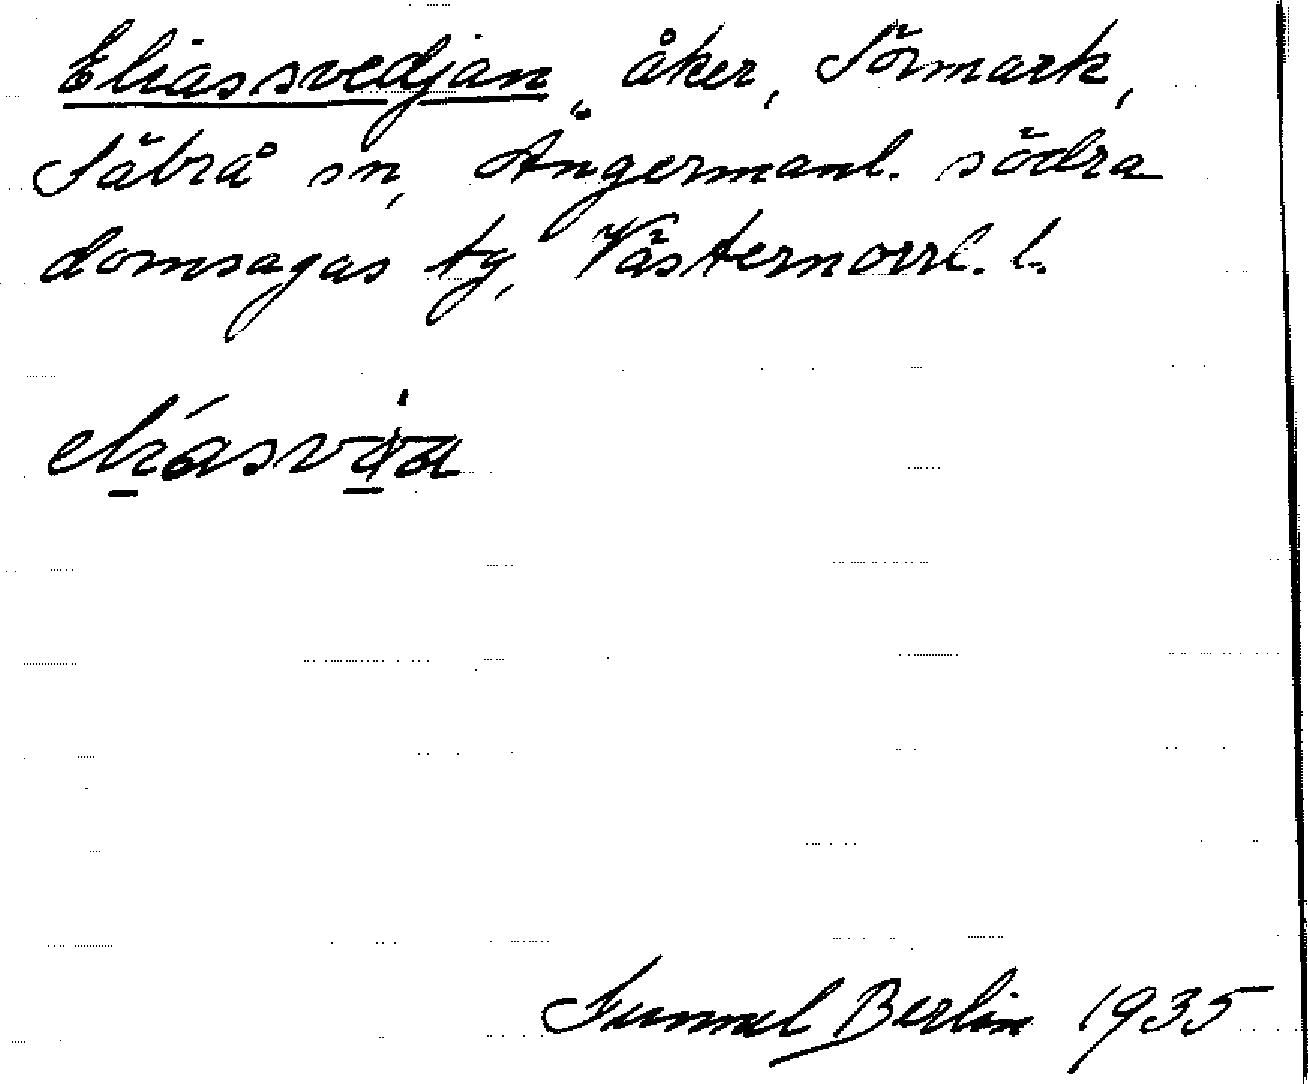 Eliassvedjan, åker, Sörmark,
Säbrå sn, Ångermanl. södra
domsagas tg, Västernorrl. l.
Gunnel Berlin 1935